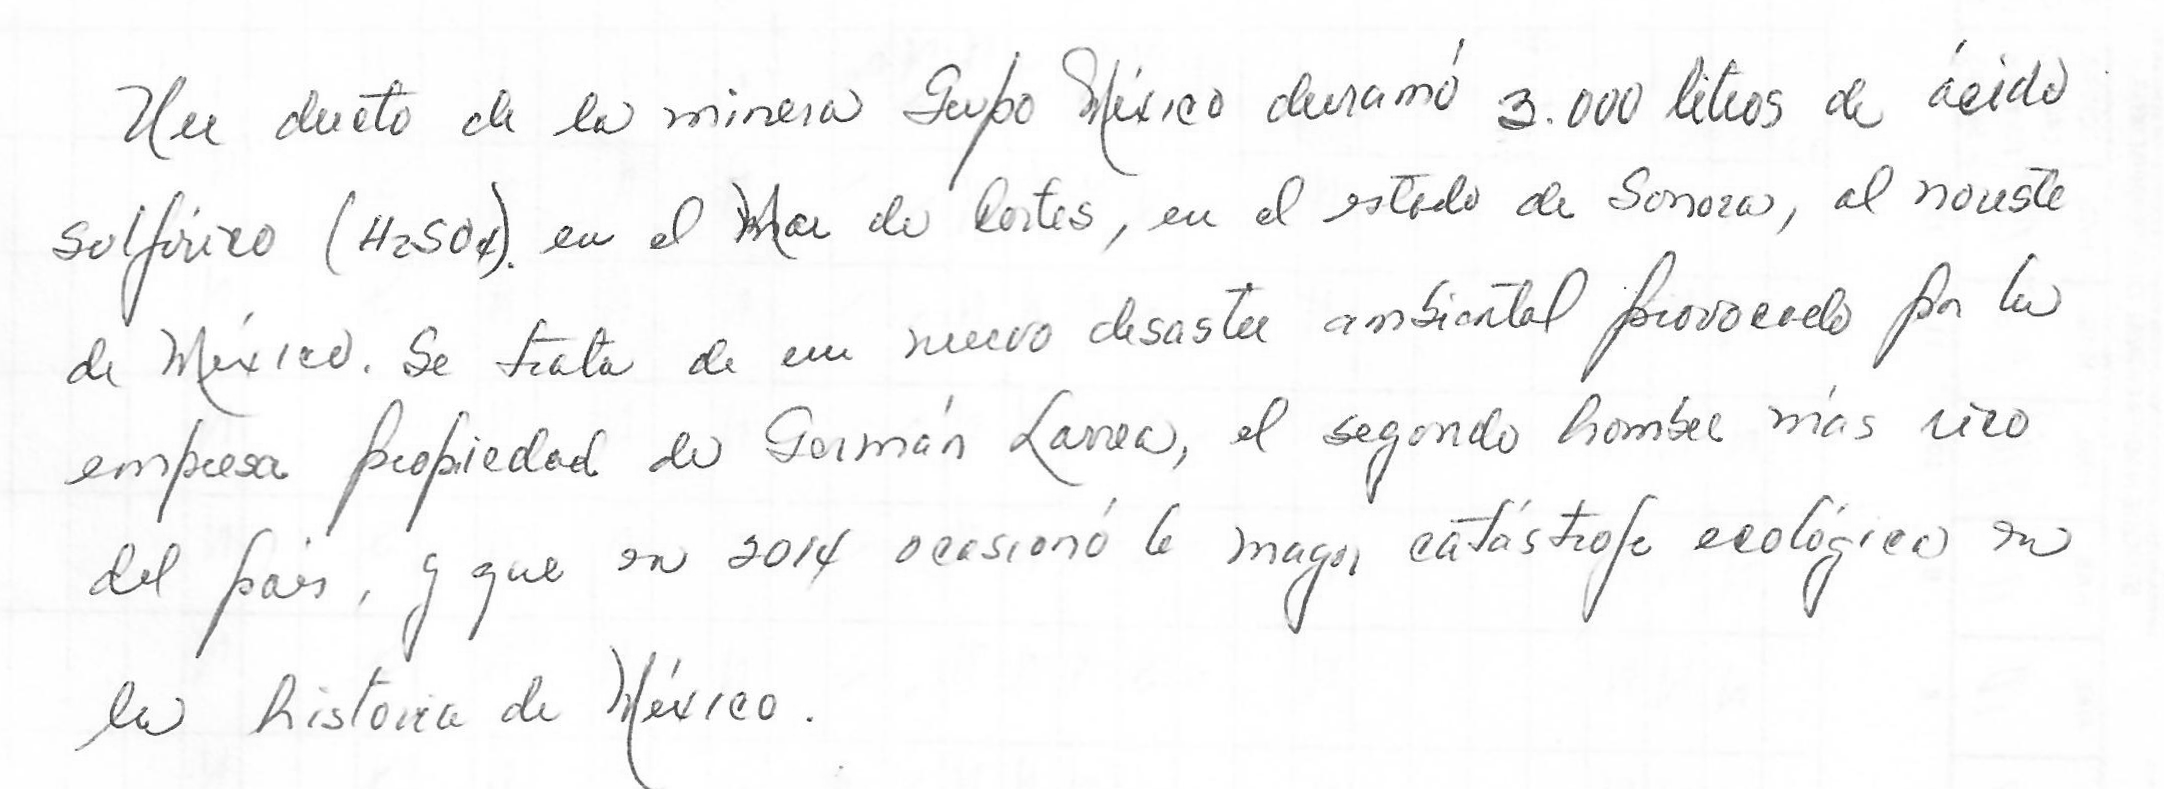 Un ducto de la minera Grupo México derramó 3.000 litros de ácido
sulfúrico (H2SO4). en el Mar de Cortes, en el estado de Sonora, al noreste
de México. Se trata de un nuevo desastre ambiental provocado por la
empresa propiedad de Germán Larrea, el segundo hombre más rico
del país, y que en 2014 ocasionó la mayor catástrofe ecológica en
la historia de México.